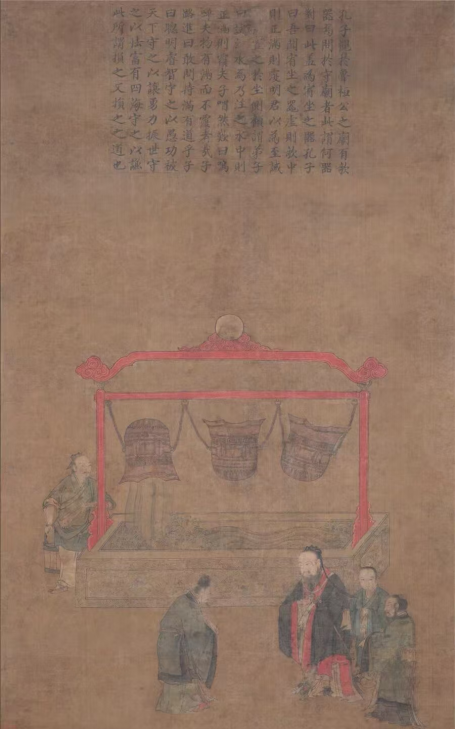 孔子觀於魯桓公之廟有欹
器焉問於守廟者此謂何器
對曰此蓋為宥坐之器孔子
曰吾聞宥坐之器虛則欹中
則正滿則覆明君以為至誡
之於坐側顧謂弟子
曰試注水焉乃注之水中則
正滿則覆夫子喟然歎曰嗚
呼夫物有滿而不覆者哉子
路進曰敢問持滿有道乎子
曰聰明睿智守之以愚功被
天下守之以讓勇力振世守
之以怯富有四海守之以謙
此所謂損之又損之之道也